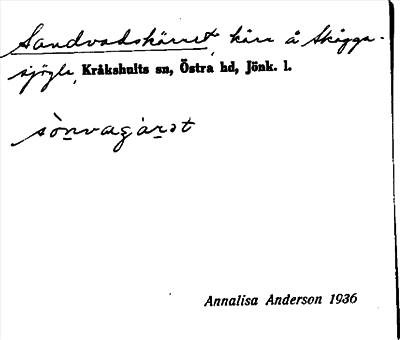 Sandvadskärret, kärr å Skägga-
sjögle, Kråkshults sn, Östra hd, Jönk. l.
sònvagàrət
Annalisa Anderson 1936